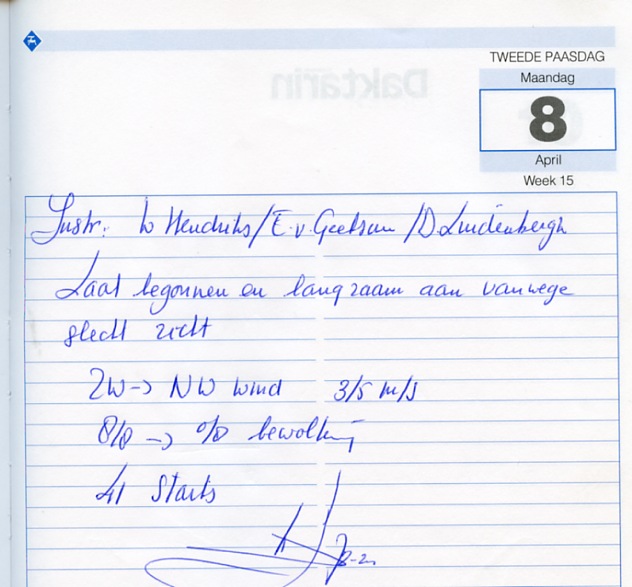 TWEEDE PAASDAG
Maandag
8
April
Week 15
Daktarin
Instr: W Hendriks / E. v. Geetsom / D. Luidenbergh
Laat begonnen en langzaam aan vanwege
slecht zicht
ZW -> NW wind 3/5 m/s
8/8 -> 0/8 bewolking
41 Starts